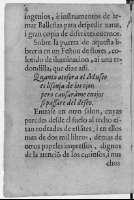 ingenios, è instrumentos de ser-
mas Palestras para despedir natu,
y gran copia de diferentes cuentos.
Sobre la puerta de aquesta
libreria en un Feston de flores, con-
tenido de iluminacion, ai una re-
dondilla, que dize assi.
Quanto atesora el Museo
es lisonja de los ojos
pero causaràme enojos
si passare del deseo.
Entrase en otro Salon, cuyas
paredes desde el suelo al techo es-
tan rodeadas de estantes, i en ellos
mas de dos mil libros, demas de
otros papeles impressos, dignos
de la atencion de los curiosos, i mu-
chos